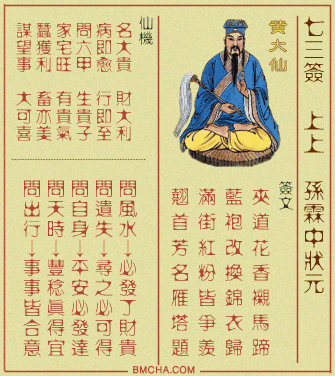 七三簽 上上 孫霖中狀元
黃大仙
簽文
夾道花香襯馬蹄
藍袍改換錦衣歸
滿街紅粉皆爭羨
翹首芳名雁塔題
仙機
名大貴 財大利
病即愈 行即至
問六甲 生貴子
家宅旺 有貴氣
蠶獲利 畜亦美
謀望事 大可喜
問風水↓必發了財貴
問遺失↓尋之必可得
問自身↓平安必發達
問天時↓豐稔眞得宜
問出行↓事事皆合意
BMCHA.COM